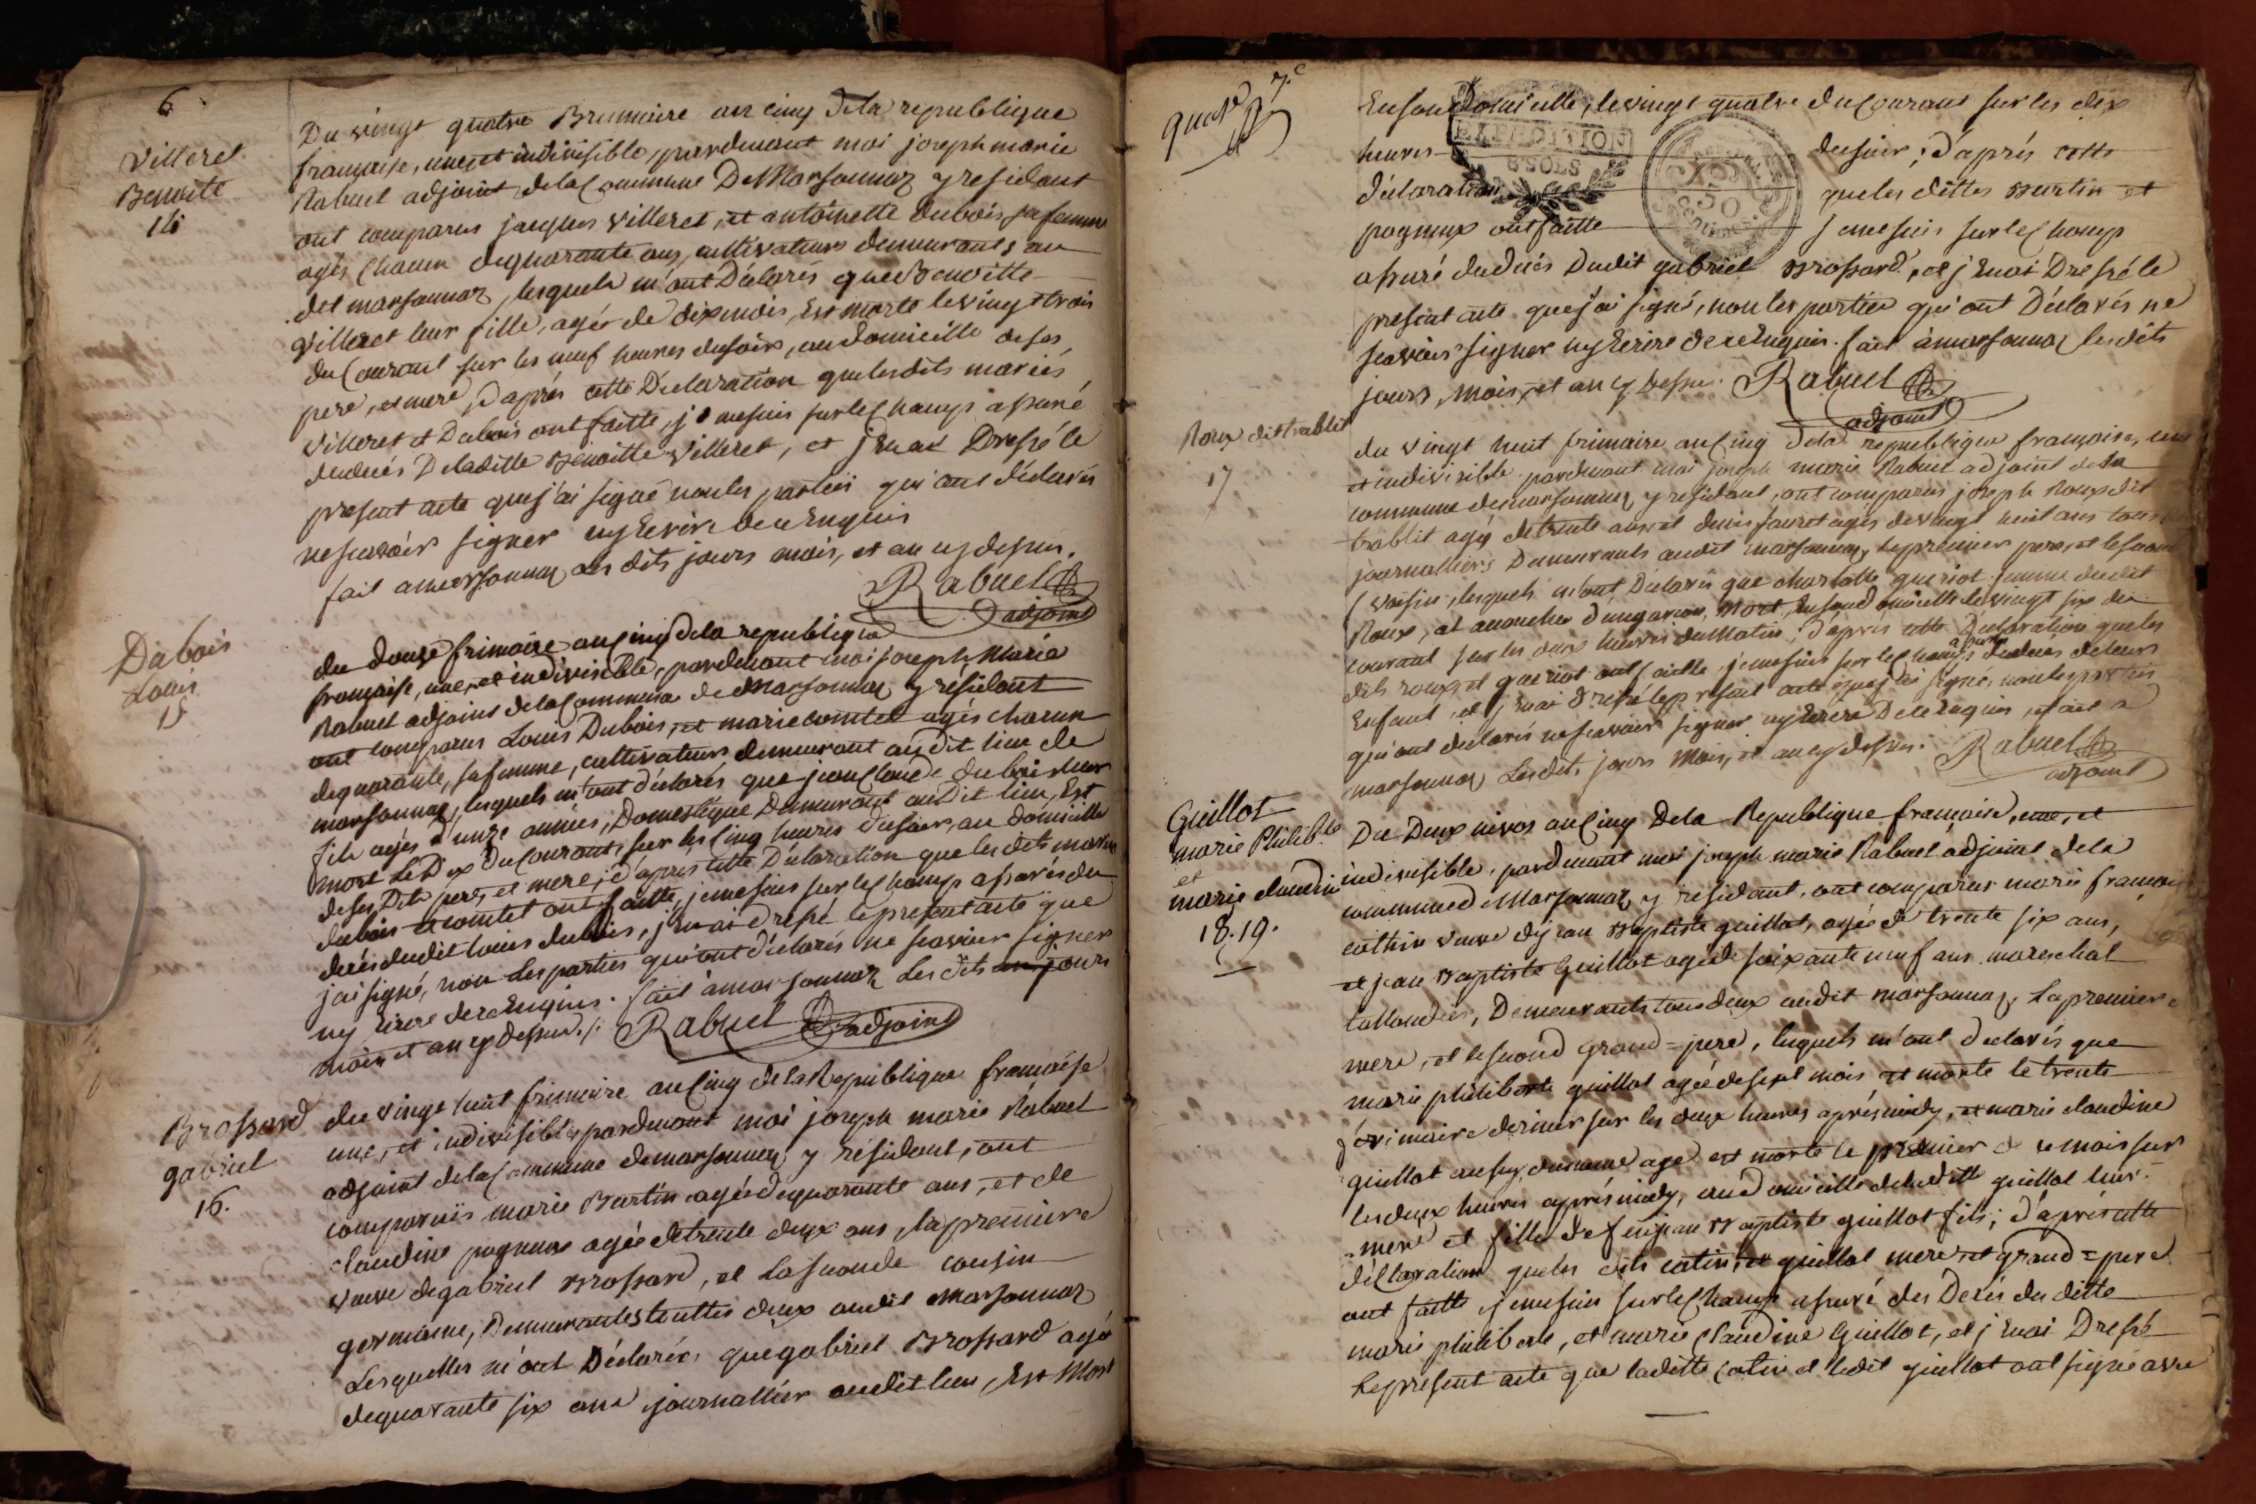 6
Villeret
Benoite
14
Du vingt quatre Brumaire an cinq dela republique
française, une, et indivisible, pardevant moi joseph marie
Rabuel adjoint dela Commune De Marsonnaz y residant
ont comparus jacques villeret, et antoinette dubois, sa femme
agés Chacun dequarante ans, cultivateurs demeurants au
dit marsonnaz, lesquels m'ont Déclarés que Benoitte
Villeret leur fille, agée de dix mois, Est morte le vingt trois
du Courant sur les neuf heures dusoir, au domicille de ses
pere, et mere, d'aprés cette Déclaration que lesdits mariés
Villeret et Dubois ont faitte, je me suis sur le Champ assuré
du décés De laditte Benoitte Villeret, et j'En ai Dressé le
present acte que j'ai signé non les parties qui ont déclarés
ne scavoir signer ny Ecrire de ce Enquis
fait a marsonnaz Les dits jours mois, et an cy dessus.
Rabuel
adjoint
Dubois
Louis
15
du douze frimaire an Cinq dela republique
française, une, et indivisible, pardevant moi joseph Marie
Rabuel adjoint dela Commune de Marsonnaz y résidant
ont comparus Louis Dubois, et marie comtet agés chacun
dequarante, sa femme, cultivateurs demeurant audit lieu de
marsonnaz, lesquels m'ont déclarés que jean Claude dubois leur
fils agés d'onze années, Domestique Demeurant audit lieu, Est
mort Le Dix du Courant, sur les Cinq heures dusoir, au domicille
deses Dits pere, et mere, d'aprés cette Déclaration que les dits mariés
dubois et comtet ont faitte, je me suis sur le Champ assurés du
decés dudit louis dubois, j'En ai dressé le present acte que
j'ai signé, non Les parties qui ont déclarés ne scavoir signer
ny Ecrire de ce Enquis. fait à marsonnaz Les dits jours
mois et an cy dessus ./.
Rabuel adjoint
Brossard
gabriel
16.
du vingt huit frimaire an Cinq dela Republique française
une, et indivisible, pardevant moi joseph marie Rabuel
adjoint dela Commune demarsonnaz y résidant, ont
comparuës marie Burtin agée dequarante ans, et de
claudine pagneux agée detrente deux ans, la premiere
veuve de gabriel Brossard, et La seconde cousin
germaine, Demeurantes touttes deux audit Marsonnaz
Lesquelles m'ont Déclarées que gabriel Brossard agé
dequarante six ans journallier audit lieu, Est Mort
quatre 7.e
En son Domicille, le vingt quatre du Courant sur les dix
EXPEDITION
8 SOLS
heures dusoir; d'aprés cette
déclaration que les dittes Burtin et
pagneux ont faitte je me suis sur le Champ
assuré du decés Dudit gabriel Brossard, et j'En ai Dressé le
present acte que j'ai signé, non les parties qui ont Déclarés ne
scavoir signer ny Ecrire de ce Enquis. fait à marsonnaz les dits
jours, mois, et an cy Dessus.
Rabuel
adjoint
Roux dit trablit
17
du vingt huit frimaire, an Cinq dela republique française, une
et indivisible, pardevant moi joseph marie Rabuel adjoint dela
commune demarsonnaz y residant, ont comparus joseph Roux dit
trablit agé detrente ans, et denis favret agés devingt huit ans tous
journalliers Demeurants audit marsonnaz, le premier pere, et le second
voisin, lesquels m'ont Déclarés que charlotte gueriot femme dudit
Roux, et accouchée d'un garcon, Mort, En son domicille le vingt six du
courant sur les deux heures du Matin; d'aprés cette Déclaration que les
dits roux, et gueriot ont faitte, je me suis sur le champ assuré du deces de leurs
Enfant, et j'En ai dressé le present acte que j'ai signé, non les parties
qui ont declarés ne scavoir signer ny Ecrire De ce Enquis, fait a
marsonnaz Lesdits jours Mois, et an cy dessus.
Rabuel
adjoint
Guillot
marie Philib.te
et
marie claudine
18.19.
Du Deux nivos an Cinq Dela Republique française, une, et
indivisible, pardevant moi joseph marie Rabuel adjoint dela
commune de Marsonnaz y résidant, ont comparus marie françoise
cattin veuve de jean Baptiste guillot, agée de trente six ans,
et jean Baptiste Guillot agé de soixante neuf ans mareschal
tallandier, Demeurants tous deux audit marsonnaz, La premiere
mere, et le second grand=pere, lesquels m'ont declarés que
marie philiberte guillot agée desept mois est morte le trente
frimaire dernier sur les deux heures aprés midy, et marie claudine
guillot aussy du même age est morte le premier de ce mois sur
les deux heures aprés midy, au domicille deladitte guillot leur
mere et fille de feu jean Baptiste guillot fils; d'aprés cette
déclaration que les dits catin, et guillot mere et grand=pere
ont faitte je me suis sur le Champ assuré des Décés du ditte
marie philiberte, et marie Claudine Guillot, et j'En ai Dressé
Le present acte que laditte Catin et ledit guillot ont signé avec